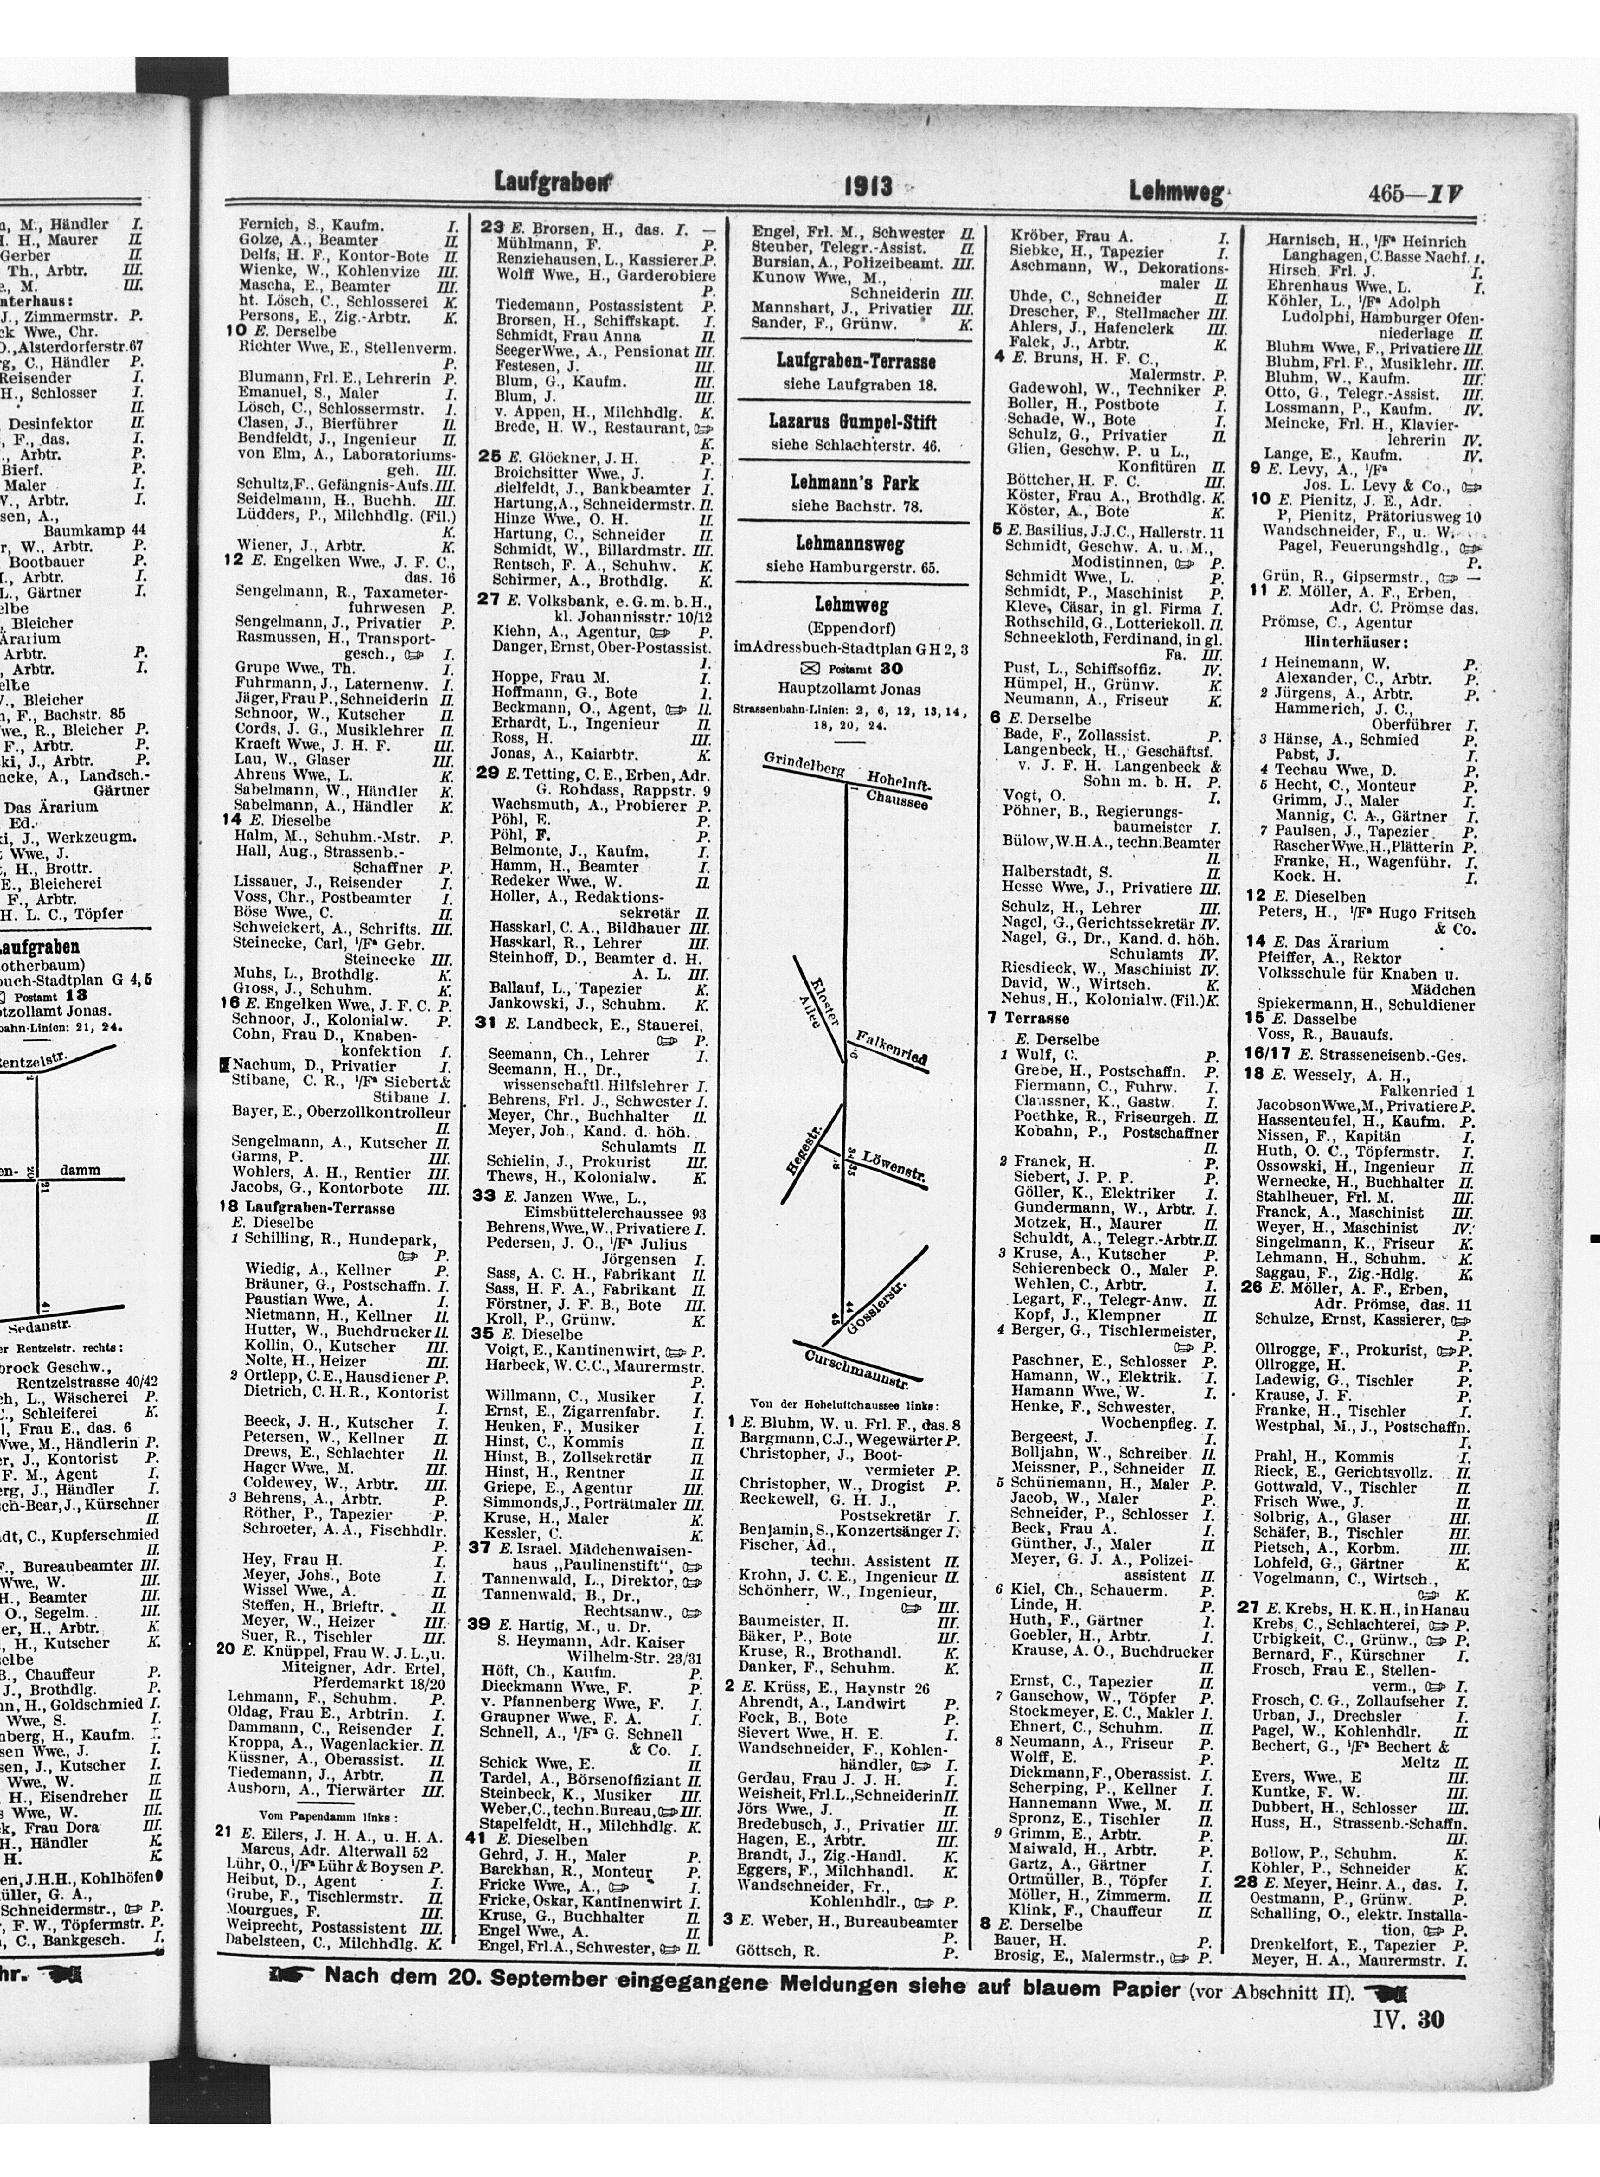 Laufgraben 1913 Lehmweg 465—IV
n, M., Händler I.
H., Maurer II.
Gerber II.
Th., Arbtr. III.
e., M. III.
nterhaus:
J., Zimmermstr. P.
ck Wwe, Chr.
O., Alsterdorferstr. 67
g, C., Händler P.
Reisender I.
H., Schlosser I.
II.
Desinfektor II.
F., das. I.
, Arbtr. P.
Bierf. P.
Maler I.
V., Arbtr. I.
sen, A.,
Baumkamp 44
r, W., Arbtr. P.
Bootbauer P.
I., Arbtr. I.
L., Gärtner I.
elbe
, Bleicher
Ärarium
Arbtr. P.
, Arbtr. I.
elbe
V., Bleicher
n, F., Bachstr. 85
we., R., Bleicher P.
F., Arbtr. P.
ki, J., Arbtr. P.
ncke, A., Landsch.-
Gärtner
Das Ärarium
Ed.
ki, J., Werkzeugm.
Wwe., J.
, H., Brottr.
E., Bleicherei
F., Arbtr.
H. L. C., Töpfer
aufgraben
otherbaum)
buch-Stadtplan G 4, 5
Postamt 13
ptzollamt Jonas.
bahn-Linien: 21, 24.
entzelstr.
en- damm
Sedanstr.
er Rentzelstr. rechts:
brock Geschw.,
Rentzelstrasse 40/42
ch, L., Wäscherei P.
C., Schleiferei K.
l, Frau E., das. 6
Wwe., M., Händlerin P.
er, J., Kontorist P.
F. M., Agent I.
erg, J., Händler I.
sch-Bear, J., Kürschner
II.
dt, C., Kupferschmied
II.
F., Bureaubeamter III.
Wwe., W. III.
H., Beamter III.
O., Segelm. III.
er, H., Arbtr. K.
, H., Kutscher K.
selbe
B., Chauffeur P.
J., Brothdlg. P.
nn, H., Goldschmied I.
Wwe., S. I.
nberg, H., Kaufm. I.
sen Wwe., J. I.
sen, J., Kutscher I.
Wwe., W. II.
H., Eisendreher II.
s Wwe., W. III.
k, Frau Dora III.
H., Händler K.
H. K.
en, J.H.H., Kohlhöfen
üller, G. A.,
Schneidermstr., P.
, F. W., Töpfermstr. P.
, C., Bankgesch. I.
hr.
Fernich, S., Kaufm. I.
Golze, A., Beamter II.
Delfs, H. F., Kontor-Bote II.
Wienke, W., Kohlenvize III.
Mascha, E., Beamter III.
ht. Lösch, C., Schlosserei K.
Persons, E., Zig.-Arbtr. K.
10 E. Derselbe
Richter Wwe., E., Stellenverm.
P.
Blumann, Frl. E., Lehrerin P.
Emanuel, S., Maler I.
Lösch, C., Schlossermstr. I.
Clasen, J., Bierführer II.
Bendfeldt, J., Ingenieur II.
von Elm, A., Laboratoriums-
geh. III.
Schultz, F., Gefängnis-Aufs. III.
Seidelmann, H., Buchh. III.
Lüdders, P., Milchhdlg. (Fil.)
K.
Wiener, J., Arbtr. K.
12 E. Engelken Wwe., J. F. C.,
das. 16
Sengelmann, R., Taxameter-
fuhrwesen P.
Sengelmann, J., Privatier P.
Rasmussen, H., Transport-
gesch., I.
Grupe Wwe., Th. I.
Fuhrmann, J., Laternenw. I.
Jäger, Frau P., Schneiderin II.
Schnoor, W., Kutscher II.
Cords, J. G., Musiklehrer II.
Kraeft Wwe., J. H. F. III.
Lau, W., Glaser III.
Ahrens Wwe., L. K.
Sabelmann, W., Händler K.
Sabelmann, A., Händler K.
14 E. Dieselbe
Halm, M., Schuhm.-Mstr. P.
Hall, Aug., Strassenb.-
Schaffner P.
Lissauer, J., Reisender I.
Voss, Chr., Postbeamter I.
Böse Wwe., C. II.
Schweickert, A., Schrifts. III.
Steinecke, Carl, I/Fa Gebr.
Steinecke III.
Muhs, L., Brothdlg. K.
Gross, J., Schuhm. K.
16 E. Engelken Wwe., J. F. C. P.
Schnoor, J., Kolonialw. P.
Cohn, Frau D., Knaben-
konfektion I.
Nachum, D., Privatier I.
Stibane, C. R., I/Fa Siebert &
Stibane I.
Bayer, E., Oberzollkontrolleur
II.
Sengelmann, A., Kutscher II.
Garms, P. III.
Wohlers, A. H., Rentier III.
Jacobs, G., Kontorbote III.
18 Laufgraben-Terrasse
E. Dieselbe
1 Schilling, R., Hundepark,
P.
Wiedig, A., Kellner P.
Bräuner, G., Postschaffn. I.
Paustian Wwe., A. I.
Nietmann, H., Kellner II.
Hutter, W., Buchdrucker II.
Kollin, O., Kutscher III.
Nolte, H., Heizer III.
2 Ortlepp, C. E., Hausdiener P.
Dietrich, C. H. R., Kontorist
I.
Beeck, J. H., Kutscher I.
Petersen, W., Kellner II.
Drews, E., Schlachter II.
Hager Wwe., M. III.
Coldewey, W., Arbtr. III.
3 Behrens, A., Arbtr. P.
Röther, P., Tapezier P.
Schroeter, A. A., Fischhdlr.
P.
Hey, Frau H. I.
Meyer, Johs., Bote I.
Wissel Wwe., A. II.
Steffen, H., Brieftr. II.
Meyer, W., Heizer III.
Suer, R., Tischler III.
20 E. Knüppel, Frau W. J. L., u.
Miteigner, Adr. Ertel,
Pferdemarkt 18/20
Lehmann, F., Schuhm. P.
Oldag, Frau E., Arbtrin. I.
Dammann, C., Reisender I.
Kroppa, A., Wagenlackier. II.
Küssner, A., Oberassist. II.
Tiedemann, J., Arbtr. II.
Ausborn, A., Tierwärter III.
Vom Papendamm links:
21 E. Eilers, J. H. A., u. H. A.
Marcus, Adr. Alterwall 52
Lühr, O., I/Fa Lühr & Boysen P.
Heibut, D., Agent I.
Grube, F., Tischlermstr. II.
Mourgues, F. III.
Weiprecht, Postassistent III.
Dabelsteen, C., Milchhdlg. K.
23 E. Brorsen, H., das. I. —
Mühlmann, F. P.
Renziehausen, L., Kassierer P.
Wolff Wwe., H., Garderobiere
P.
Tiedemann, Postassistent P.
Brorsen, H., Schiffskapt. I.
Schmidt, Frau Anna II.
Seeger Wwe., A., Pensionat III.
Festesen, J. III.
Blum, G., Kaufm. III.
Blum, J. III.
v. Appen, H., Milchhdlg. K.
Brede, H. W., Restaurant,
K.
25 E. Glöckner, J. H. P.
Broichsitter Wwe., J. I.
Bielfeldt, J., Bankbeamter I.
Hartung, A., Schneidermstr. II.
Hinze Wwe., O. H. II.
Hartung, C., Schneider II.
Schmidt, W., Billardmstr. III.
Rentsch, F. A., Schuhw. K.
Schirmer, A., Brothdlg. K.
27 E. Volksbank, e. G. m. b. H.,
kl. Johannisstr. 10/12
Kiehn, A., Agentur, P.
Danger, Ernst, Ober-Postassist.
I.
Hoppe, Frau M. I.
Hoffmann, G., Bote I.
Beckmann, O., Agent, II.
Erhardt, L., Ingenieur II.
Ross, H. III.
Jonas, A., Kaiarbtr. K.
29 E. Tetting, C. E., Erben, Adr.
G. Rohdass, Rappstr. 9
Wachsmuth, A., Probierer P.
Pöhl, E. P.
Pöhl, F. P.
Belmonte, J., Kaufm. I.
Hamm, H., Beamter I.
Redeker Wwe., W. II.
Holler, A., Redaktions-
sekretär II.
Hasskarl, C. A., Bildhauer III.
Hasskarl, R., Lehrer III.
Steinhoff, D., Beamter d. H.
A. L. III.
Ballauf, L., Tapezier K.
Jankowski, J., Schuhm. K.
31 E. Landbeck, E., Stauerei,
P.
Seemann, Ch., Lehrer I.
Seemann, H., Dr.,
wissenschaftl. Hilfslehrer I.
Behrens, Frl. J., Schwester I.
Meyer, Chr., Buchhalter II.
Meyer, Joh., Kand. d. höh.
Schulamts II.
Schielin, J., Prokurist III.
Thews, H., Kolonialw. K.
33 E. Janzen Wwe., L.,
Eimsbüttelerchaussee 93
Behrens, Wwe., W., Privatiere I.
Pedersen, J. O., I/Fa Julius
Jörgensen I.
Sass, A. C. H., Fabrikant II.
Sass, H. F. A., Fabrikant II.
Förstner, J. F. B., Bote III.
Kroll, P., Grünw. K.
35 E. Dieselbe
Voigt, E., Kantinenwirt, P.
Harbeck, W. C. C., Maurermstr.
P.
Willmann, C., Musiker I.
Ernst, E., Zigarrenfabr. I.
Henken, F., Musiker I.
Hinst, C., Kommis II.
Hinst, B., Zollsekretär II.
Hinst, H., Rentner II.
Griepe, E., Agentur III.
Simmonds, J., Porträtmaler III.
Kruse, H., Maler K.
Kessler, C. K.
37 E. Israel. Mädchenwaisen-
haus „Paulinenstift“,
Tannenwald, L., Direktor,
Tannenwald, B., Dr.,
Rechtsanw.,
39 E. Hartig, M., u. Dr.
S. Heymann, Adr. Kaiser
Wilhelm-Str. 23/31
Höft, Ch., Kaufm. P.
Dieckmann Wwe., F. P.
v. Pfannenberg Wwe., F. I.
Graupner Wwe., F. A. I.
Schnell, A., I/Fa G. Schnell
& Co. I.
Schick Wwe., E. II.
Tardel, A., Börsenoffiziant II.
Steinbeck, K., Musiker III.
Weber, C., techn. Bureau, III.
Stapelfeldt, H., Milchhdlg. K.
41 E. Dieselben
Gehrd, J. H., Maler P.
Barckhan, R., Monteur P.
Fricke Wwe., A., I.
Fricke, Oskar, Kantinenwirt I.
Kruse, G., Buchhalter II.
Engel Wwe., A. II.
Engel, Frl. A., Schwester, II.
Engel, Frl. M., Schwester II.
Steuber, Telegr.-Assist. II.
Bursian, A., Polizeibeamt. III.
Kunow Wwe., M.,
Schneiderin III.
Mannshart, J., Privatier III.
Sander, F., Grünw. K.
Laufgraben-Terrasse
siehe Laufgraben 18.
Lazarus Gumpel-Stift
siehe Schlachterstr. 46.
Lehmann's Park
siehe Bachstr. 78.
Lehmannsweg
siehe Hamburgerstr. 65.
Lehmweg
(Eppendorf)
im Adressbuch-Stadtplan G H 2, 3
Postamt 30
Hauptzollamt Jonas
Strassenbahn-Linien: 2, 6, 12, 13, 14,
18, 20, 24.
Grindelberg Hoheluft-
Chaussee
Kloster
Allee
Falkenried
Hegestr.
34 35
Löwenstr.
44
46
Gosslerstr.
Curschmannstr.
Von der Hoheluftchaussee links:
1 E. Bluhm, W. u. Frl. F., das. 8
Bargmann, C. J., Wegewärter P.
Christopher, J., Boot-
vermieter P.
Christopher, W., Drogist P.
Reckewell, G. H. J.,
Postsekretär I.
Benjamin, S., Konzertsänger I.
Fischer, Ad.,
techn. Assistent II.
Krohn, J. C. E., Ingenieur II.
Schönherr, W., Ingenieur,
III.
Baumeister, H. III.
Bäker, P., Bote III.
Kruse, R., Brothandl. K.
Danker, F., Schuhm. K.
2 E. Krüss, E., Haynstr 26
Ahrendt, A., Landwirt P.
Fock, B., Bote P.
Sievert Wwe., H. E. I.
Wandschneider, F., Kohlen-
händler, I.
Gerdau, Frau J. J. H. I.
Weisheit, Frl. L., Schneiderin II.
Jörs Wwe., J. II.
Bredebusch, J., Privatier III.
Hagen, E., Arbtr. III.
Brandt, J., Zig.-Handl. K.
Eggers, F., Milchhandl. K.
Wandschneider, Fr.,
Kohlenhdlr., P.
3 E. Weber, H., Bureaubeamter
P.
Göttsch, R. P.
Kröber, Frau A. I.
Siebke, H., Tapezier I.
Aschmann, W., Dekorations-
maler II.
Uhde, C., Schneider II.
Drescher, F., Stellmacher III.
Ahlers, J., Hafenclerk III.
Falck, J., Arbtr. K.
4 E. Bruns, H. F. C.,
Malermstr. P.
Gadewohl, W., Techniker P.
Boller, H., Postbote I.
Schade, W., Bote I.
Schulz, G., Privatier II.
Glien, Geschw. P. u L.,
Konfitüren II.
Böttcher, H. F. C. III.
Köster, Frau A., Brothdlg. K.
Köster, A., Bote K.
5 E. Basilius, J. J. C., Hallerstr. 11
Schmidt, Geschw. A. u. M.,
Modistinnen, P.
Schmidt Wwe., L. P.
Schmidt, P., Maschinist P.
Kleve, Cäsar, in gl. Firma I.
Rothschild, G., Lotteriekoll. II.
Schneekloth, Ferdinand, in gl.
Fa. III.
Pust, L., Schiffsoffiz. IV.
Hümpel, H., Grünw. K.
Neumann, A., Friseur K.
6 E. Derselbe
Bade, F., Zollassist. P.
Langenbeck, H., Geschäftsf.
v. J. F. H. Langenbeck &
Sohn m. b. H. P.
Vogt, O. I.
Pöhner, B., Regierungs-
baumeister I.
Bülow, W. H. A., techn. Beamter
II.
Halberstadt, S. II.
Hesse Wwe., J., Privatiere III.
Schulz, H., Lehrer III.
Nagel, G., Gerichtssekretär IV.
Nagel, G., Dr., Kand. d. höh.
Schulamts IV.
Riesdieck, W., Maschinist IV.
David, W., Wirtsch. K.
Nehus, H., Kolonialw. (Fil.) K.
7 Terrasse
E. Derselbe
1 Wulf, C. P.
Grebe, H., Postschaffn. P.
Fiermann, C., Fuhrw. I.
Claussner, K., Gastw. I.
Poethke, R., Friseurgeh. II.
Kobahn, P., Postschaffner
II.
2 Franck, H. P.
Siebert, J. P. P. P.
Göller, K., Elektriker I.
Gundermann, W., Arbtr. I.
Motzek, H., Maurer II.
Schuldt, A., Telegr.-Arbtr. II.
3 Kruse, A., Kutscher P.
Schierenbeck O., Maler P.
Wehlen, C., Arbtr. I.
Legart, F., Telegr-Anw. II.
Kopf, J., Klempner II.
4 Berger, G., Tischlermeister,
P.
Paschner, E., Schlosser P.
Hamann, W., Elektrik. I.
Hamann Wwe., W. I.
Henke, F., Schwester,
Wochenpfleg. I.
Bergeest, J. I.
Bolljahn, W., Schreiber II.
Meissner, P., Schneider II.
5 Schünemann, H., Maler P.
Jacob, W., Maler P.
Schneider, P., Schlosser I.
Beck, Frau A. I.
Günther, J., Maler II.
Meyer, G. J. A., Polizei-
assistent II.
6 Kiel, Ch., Schauerm. P.
Linde, H. P.
Huth, F., Gärtner I.
Goebler, H., Arbtr. I.
Krause, A. O., Buchdrucker
II.
Ernst, C., Tapezier II.
7 Ganschow, W., Töpfer P.
Stockmeyer, E. C., Makler I.
Ehnert, C., Schuhm. II.
8 Neumann, A., Friseur P.
Wolff, E. P.
Dickmann, F., Oberassist. I.
Scherping, P., Kellner I.
Hannemann Wwe., M. II.
Spronz, E., Tischler II.
9 Grimm, E., Arbtr. P.
Maiwald, H., Arbtr. P.
Gartz, A., Gärtner I.
Ortmüller, B., Töpfer I.
Möller, H., Zimmerm. II.
Klink, F., Chauffeur II.
8 E. Derselbe
Bauer, H. P.
Brosig, E., Malermstr., P.
Harnisch, H., I/Fa Heinrich
Langhagen, C. Basse Nachf. I.
Hirsch, Frl. J. I.
Ehrenhaus Wwe., L. I.
Köhler, L., I/Fa Adolph
Ludolphi, Hamburger Ofen-
niederlage II.
Bluhm Wwe., F., Privatiere III.
Bluhm, Frl. F., Musiklehr. III.
Bluhm, W., Kaufm. III.
Otto, G., Telegr.-Assist. III.
Lossmann, P., Kaufm. IV.
Meincke, Frl. H., Klavier-
lehrerin IV.
Lange, E., Kaufm. IV.
9 E. Levy, A., I/Fa
Jos. L. Levy & Co.,
10 E. Pienitz, J. E., Adr.
P. Pienitz, Prätoriusweg 10
Wandschneider, F., u. W.
Pagel, Feuerungshdlg.,
P.
Grün, R., Gipsermstr., —
11 E. Möller, A. F., Erben,
Adr. C. Prömse das.
Prömse, C., Agentur
Hinterhäuser:
1 Heinemann, W. P.
Alexander, C., Arbtr. P.
2 Jürgens, A., Arbtr. P.
Hammerich, J. C.,
Oberführer I.
3 Hänse, A., Schmied P.
Pabst, J. I.
4 Techau Wwe., D. P.
5 Hecht, C., Monteur P.
Grimm, J., Maler I.
Mannig, C. A., Gärtner I.
7 Paulsen, J., Tapezier P.
Rascher Wwe., H., Plätterin P.
Franke, H., Wagenführ. I.
Kock, H. I.
12 E. Dieselben
Peters, H., I/Fa Hugo Fritsch
& Co.
14 E. Das Ärarium
Pfeiffer, A., Rektor
Volksschule für Knaben u.
Mädchen
Spiekermann, H., Schuldiener
15 E. Dasselbe
Voss, R., Bauaufs.
16/17 E. Strasseneisenb.-Ges.
18 E. Wessely, A. H.,
Falkenried 1
Jacobson Wwe., M., Privatiere P.
Hassenteufel, H., Kaufm. P.
Nissen, F., Kapitän I.
Huth, O. C., Töpfermstr. I.
Ossowski, H., Ingenieur II.
Wernecke, H., Buchhalter II.
Stahlheuer, Frl. M. III.
Franck, A., Maschinist III.
Weyer, H., Maschinist IV.
Singelmann, K., Friseur K.
Lehmann, H., Schuhm. K.
Saggau, F., Zig.-Hdlg. K.
26 E. Möller, A. F., Erben,
Adr. Prömse, das. 11
Schulze, Ernst, Kassierer,
P.
Ollrogge, F., Prokurist, P.
Ollrogge, H. P.
Ladewig, G., Tischler P.
Krause, J. F. P.
Franke, H., Tischler I.
Westphal, M., J., Postschaffn.
I.
Prahl, H., Kommis I.
Rieck, E., Gerichtsvollz. II.
Gottwald, V., Tischler II.
Frisch Wwe., J. II.
Solbrig, A., Glaser III.
Schäfer, B., Tischler III.
Pietsch, A., Korbm. III.
Lohfeld, G., Gärtner K.
Vogelmann, C., Wirtsch.,
K.
27 E. Krebs, H. K. H., in Hanau
Krebs, C., Schlachterei, P.
Urbigkeit, C., Grünw., P.
Bernard, F., Kürschner I.
Frosch, Frau E., Stellen-
verm., I.
Frosch, C. G., Zollaufseher I.
Urban, J., Drechsler I.
Pagel, W., Kohlenhdlr. II.
Bechert, G., I/Fa Bechert &
Meltz II.
Evers, Wwe., E III.
Kuntke, F. W. III.
Dubbert, H., Schlosser III.
Huss, H., Strassenb.-Schaffn.
III.
Bollow, P., Schuhm. K.
Köhler, P., Schneider K.
28 E. Meyer, Heinr. A., das. I.
Oestmann, P., Grünw. P.
Schalling, O., elektr. Installa-
tion, P.
Drenkelfort, E., Tapezier P.
Meyer, H. A., Maurermstr. I.
Nach dem 20. September eingegangene Meldungen siehe auf blauem Papier (vor Abschnitt II).
IV. 30